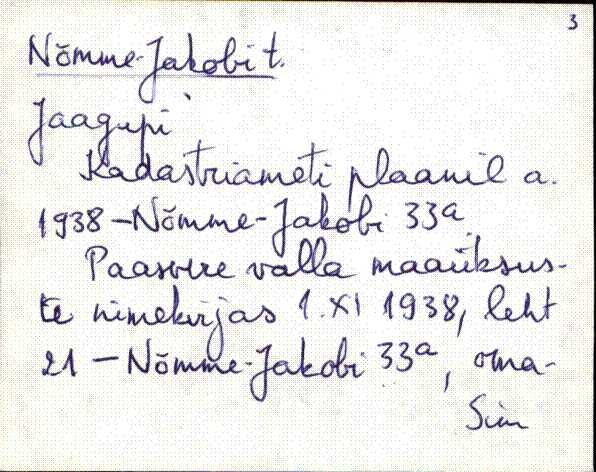 3
Nõmme-Jakobi t.
Jaagupi
Kadastriameti plaanil a.
1938 – Nõmme-Jakobi 33a
Paasvere valla maaüksus-
te nimekirjas 1. XI 1938, leht
21 – Nõmme-Jakobi 33a, oma-
Sim